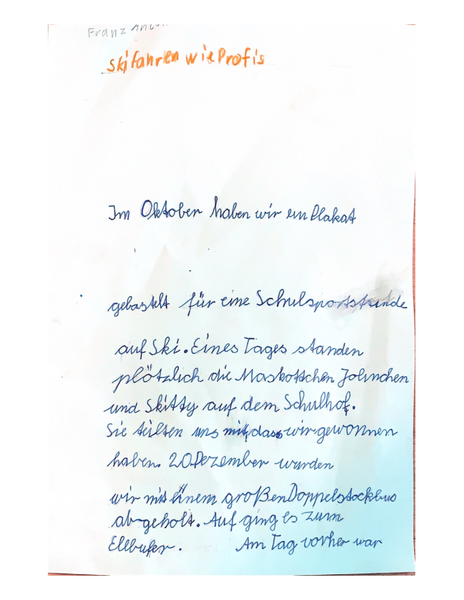 Franz
Skifahren wie Profis
Im Oktober haben wir ein Plakat
gebastelt für eine Schulsportstunde
auf Ski. Eines Tages standen
plötzlich die Maskottchen Jolinchen
und Skitty auf dem Schulhof.
Sie teilten uns mit, dass wir gewonnen
haben. 20 Dezember wurden
wir mit einem großen Doppelstockbus
abgeholt. Auf ging es zum
Am Tag vorher war